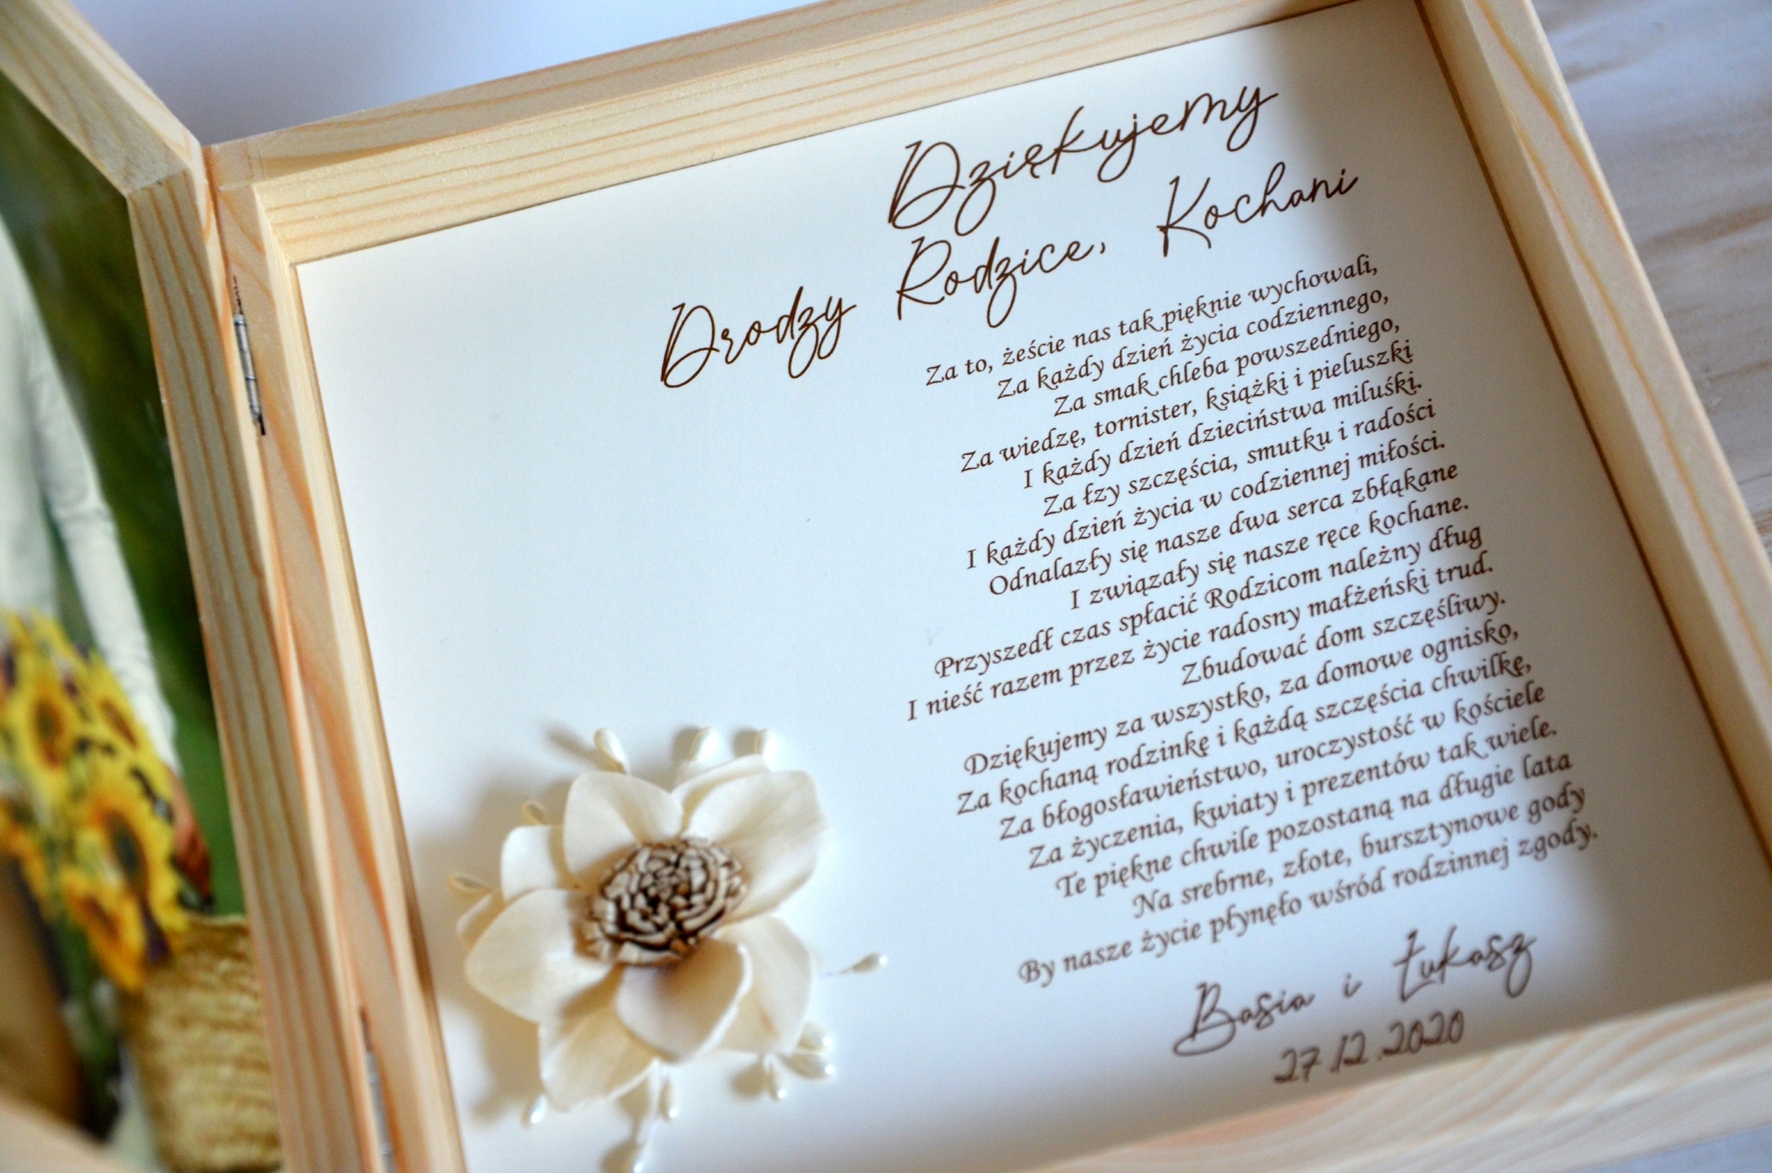 Dziękujemy
Drodzy Rodzice, Kochani
Za to, żeście nas tak pięknie wychowali,
Za każdy dzień życia codziennego,
Za smak chleba powszedniego,
Za wiedzę, tornister, książki i pieluszki
I każdy dzień dzieciństwa miluśki.
Za łzy szczęścia, smutku i radości
I każdy dzień życia w codziennej miłości.
Odnalazły się nasze dwa serca zbłąkane
I związały się nasze ręce kochane.
Przyszedł czas spłacić Rodzicom należny dług
I nieść razem przez życie radosny małżeński trud.
Zbudować dom szczęśliwy.
Dziękujemy za wszystko, za domowe ognisko,
Za kochaną rodzinkę i każdą szczęścia chwilkę,
Za błogosławieństwo, uroczystość w kościele
Za życzenia, kwiaty i prezentów tak wiele.
Te piękne chwile pozostaną na długie lata
Na srebrne, złote, bursztynowe gody
By nasze życie płynęło wśród rodzinnej zgody.
Basia i Łukasz
27.12.2020